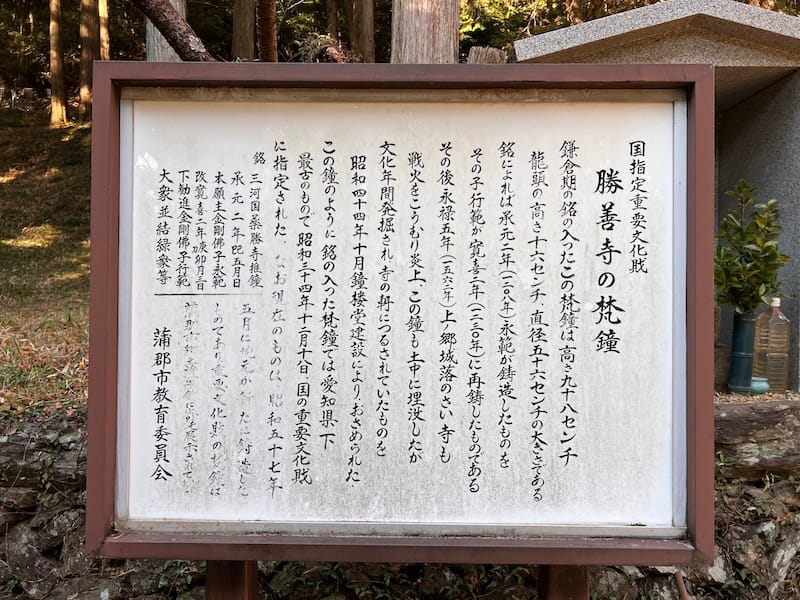 国指定重要文化財
勝善寺の梵鐘
鎌倉期の銘の入ったこの梵鐘は高さ九十八センチ
龍頭の高さ十六センチ、直径五十六センチの大きさである
銘によれば承元二年(一二〇八年)永範が鋳造したものを
その子行範が寛喜二年(一二三〇年)に再鋳したものである
その後永禄五年(一五六二年)上ノ郷城落のさい寺も
戦火をこうむり炎上、この鐘も土中に埋没したが
文化年間発掘され寺の軒につるされていたものを
昭和四十四年十月鐘楼堂建設により、おさめられた
この鐘のように銘の入った梵鐘では愛知県下
最古のもので昭和三十四年十二月十日国の重要文化財
に指定された。なお現在のものは、昭和五十七年
五月に地元が新たに鋳造した
ものであり重要文化財の梵鐘は
蒲郡市
銘
三河国薬勝寺推鐘
承元二年 五月日
本願主金剛佛子永範
改寛喜二年庚卯月三日
下勧進金剛佛子行範
大衆並結縁衆等
蒲郡市教育委員会